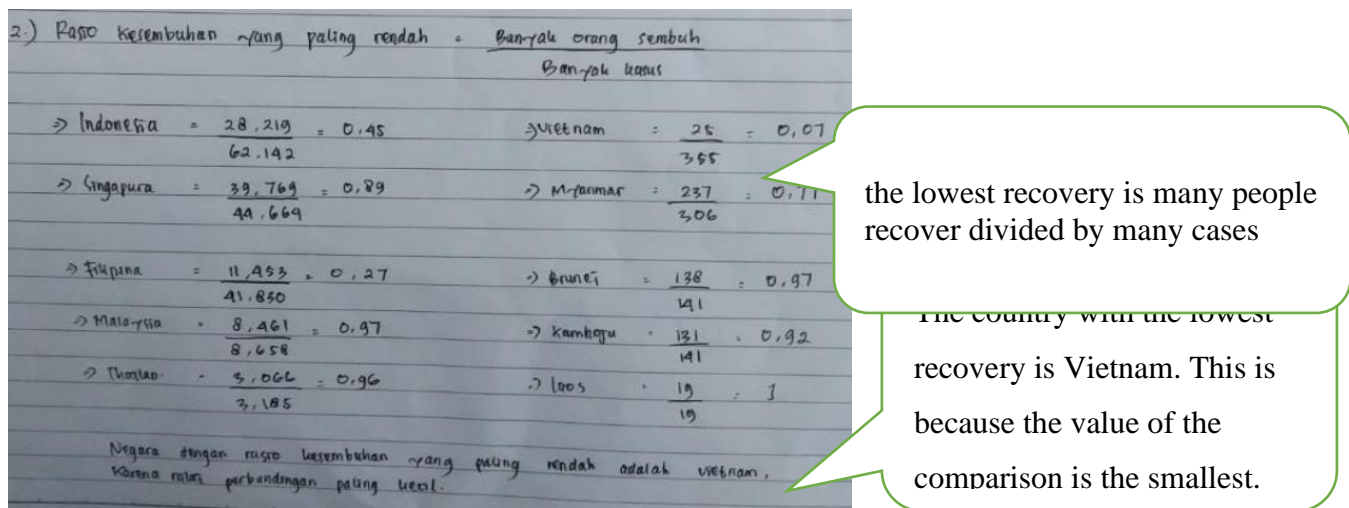 2.) Rasio Kesembuhan yang paling rendah = Banyak orang sembuh
Banyak kasus
=> Indonesia = 28.219 = 0,45
62.142
=> Singapura = 39,769 = 0,89
44.664
=> Filipina = 11,453 = 0,27
41.830
=> Malaysia = 8,461 = 0,97
8,658
=> Thailan = 3,066 = 0,96
3,185
=> Vietnam = 25 = 0,07
355
=> Myanmar = 237 = 0,77
306
=> Brunei = 138 = 0,97
141
=> Kamboja = 131 = 0,92
141
=> laos = 19 = 1
19
Negara dengan rasio kesembuhan yang paling rendah adalah vietnam,
Karena nilai perbandingan paling kecil.
the lowest recovery is many people
recover divided by many cases
The country with the lowest
recovery is Vietnam. This is
because the value of the
comparison is the smallest.